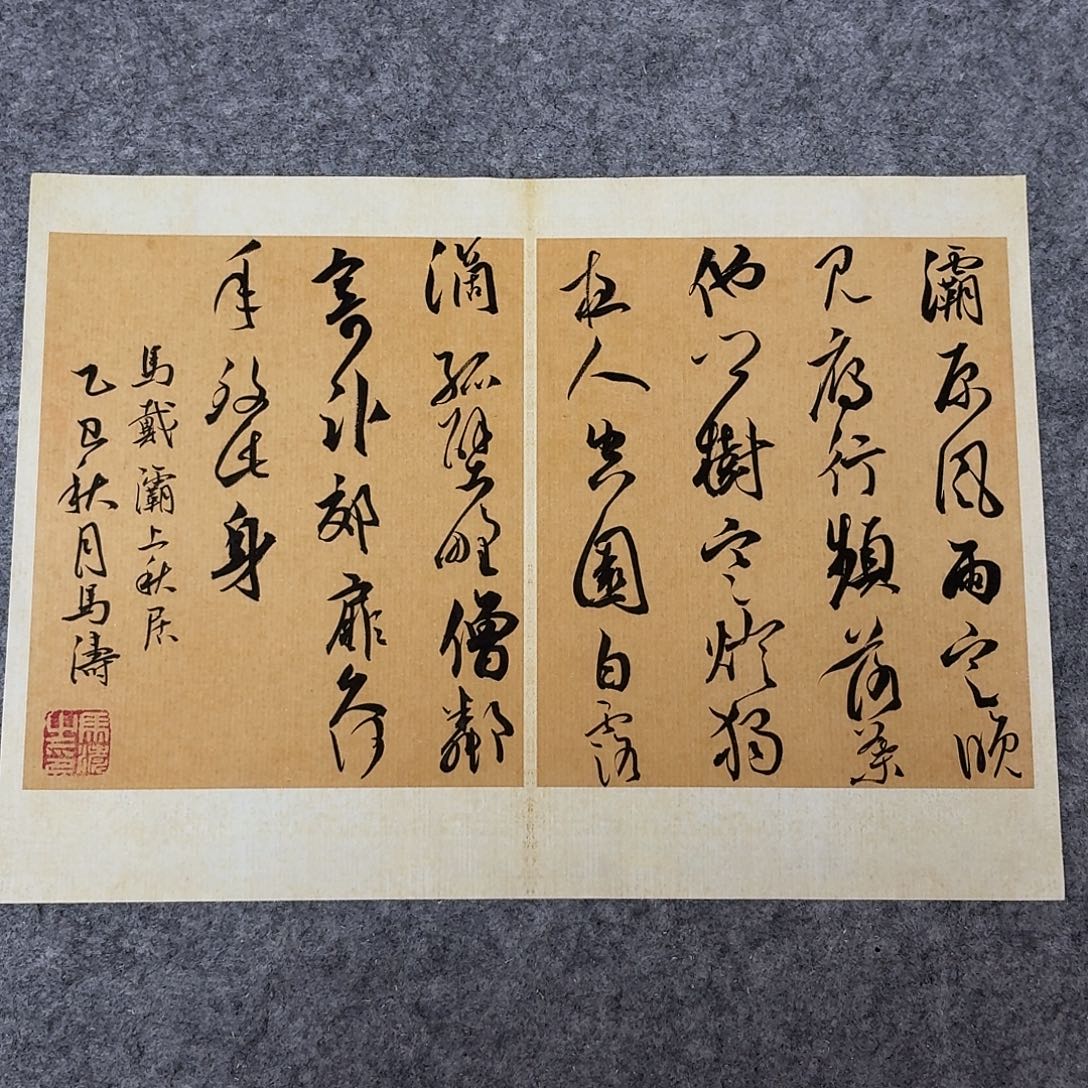 灞原風雨定晚
見雁行頻落葉
他鄉樹寒燈獨
夜人空園白露
滴孤壁野僧鄰
寄臥郊扉久何
年致此身
馬戴灞上秋居
乙巳秋月馬濤
馬濤之印